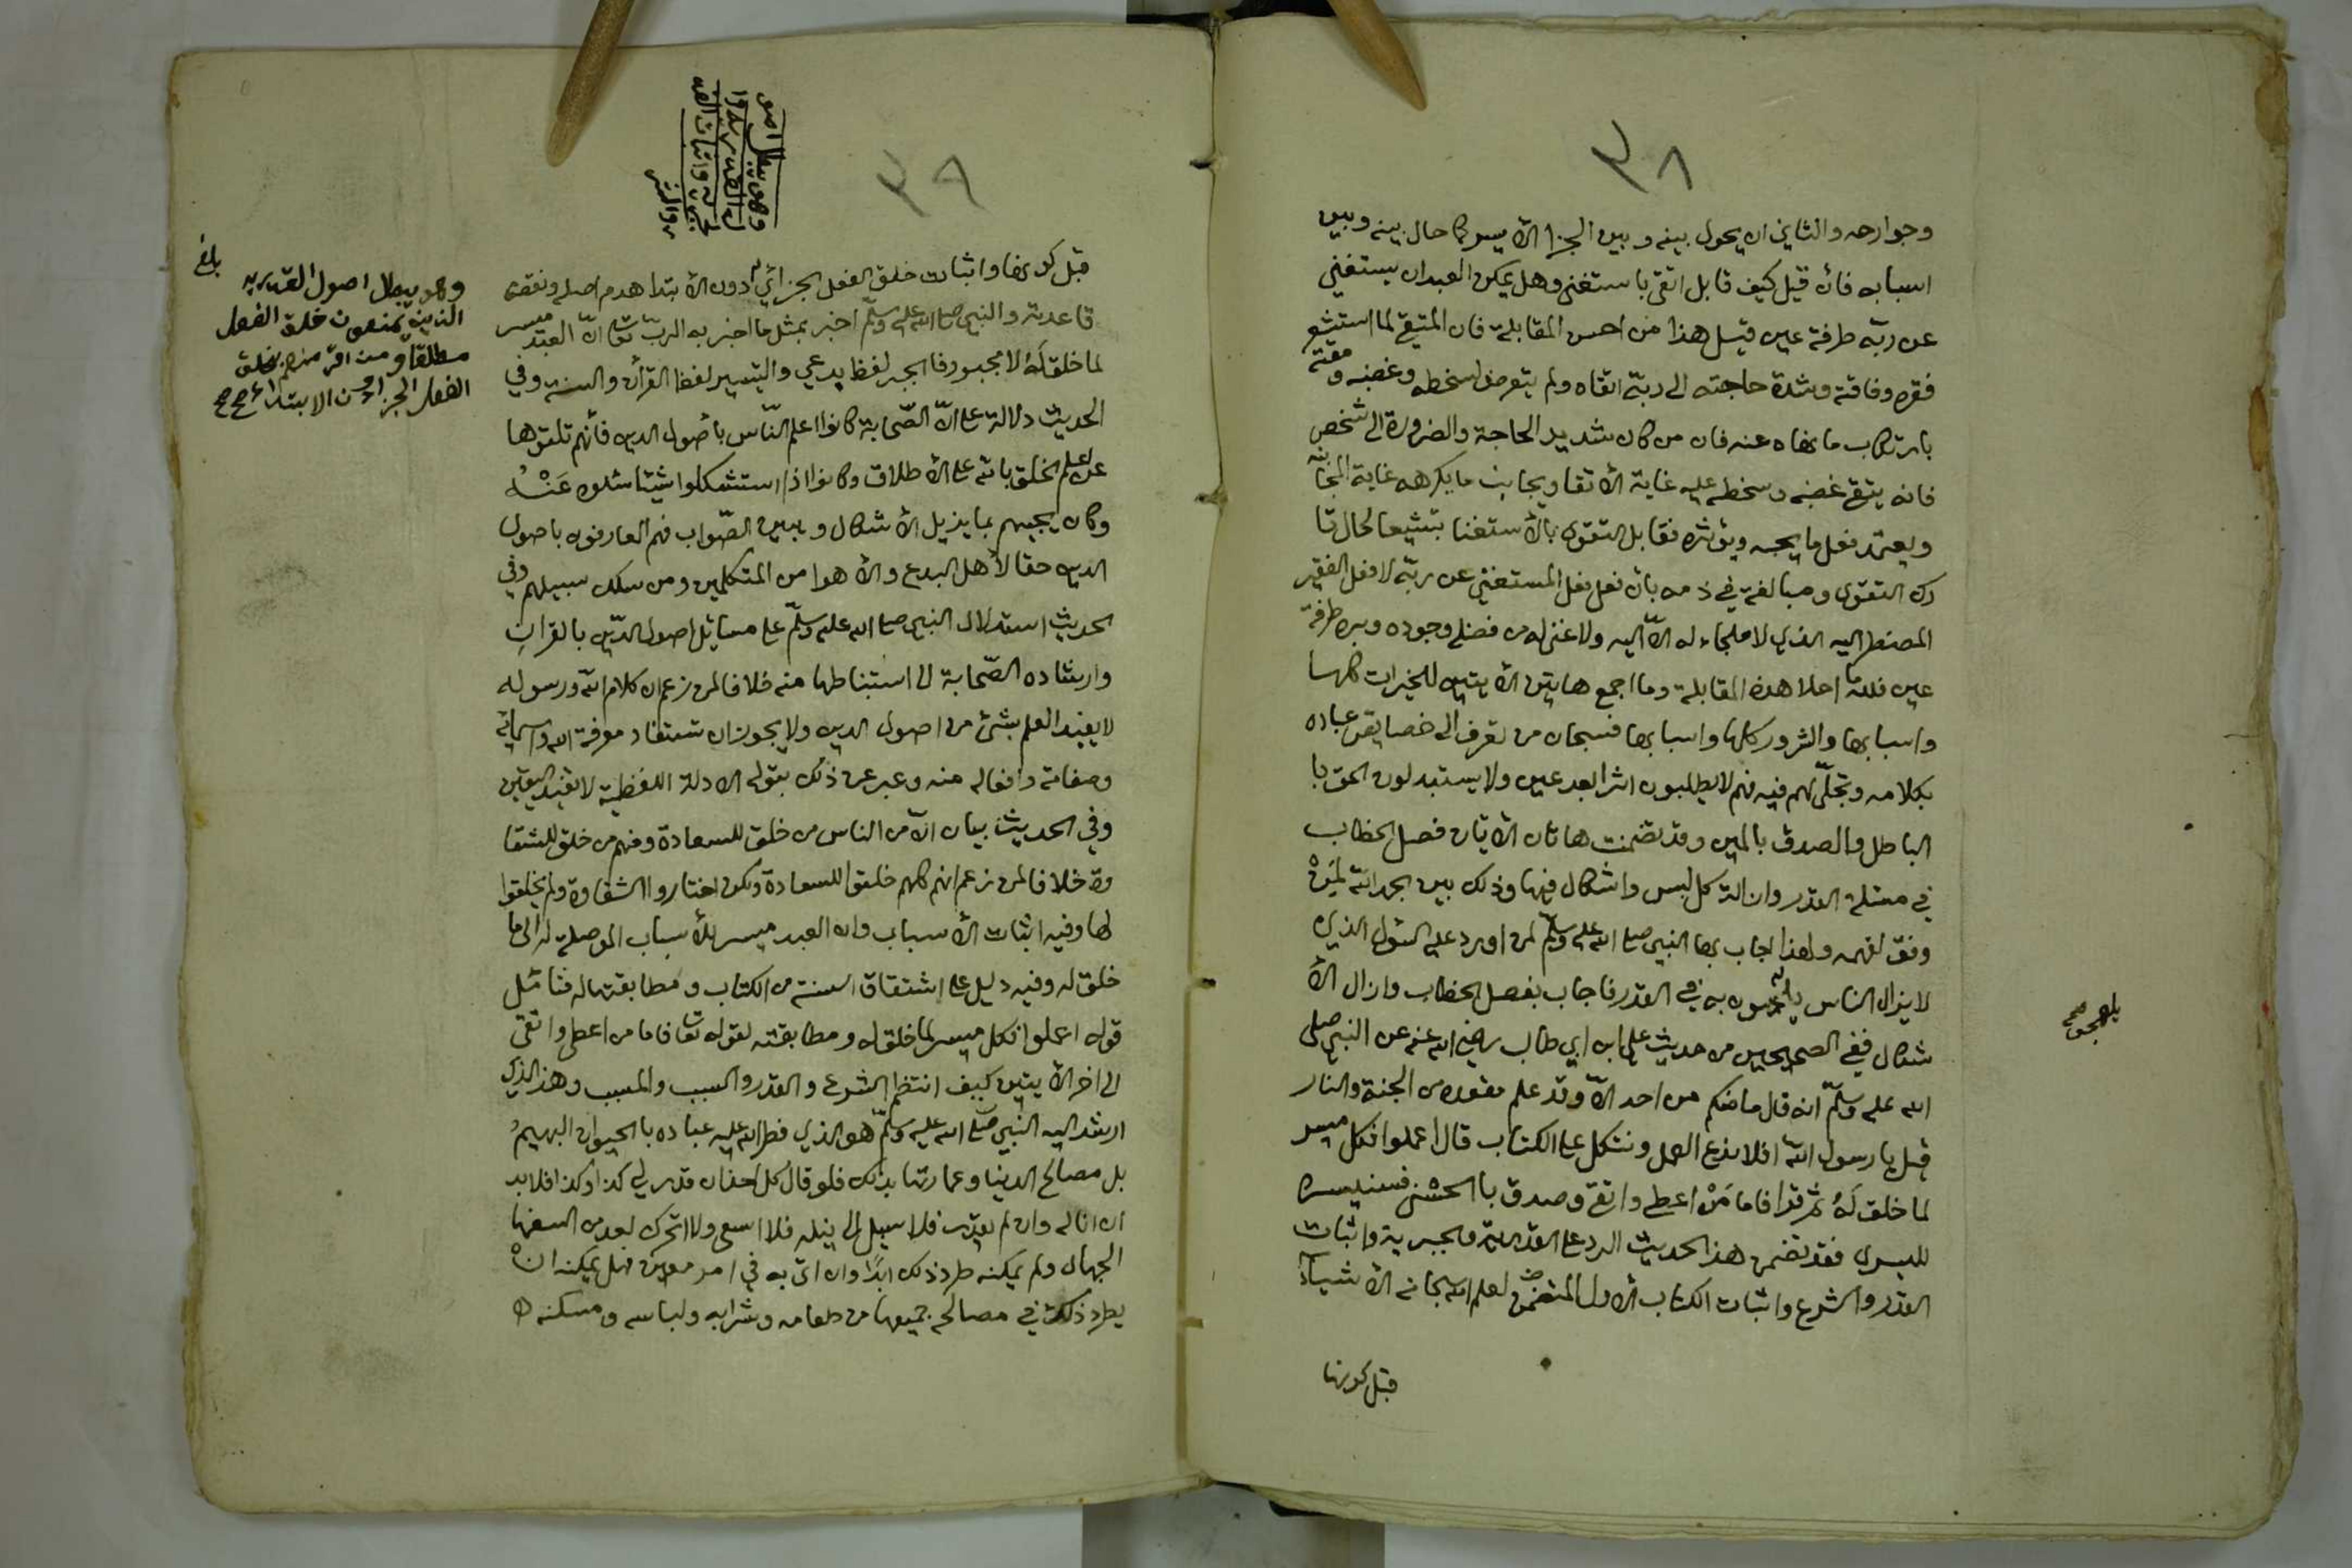 ٣٨
وجوارحه والثاني ان يحول بينه وبين الجزا الأ يسر كما حال بينه وبين
اسبابه فأن قيل كيف قابل اتقى باستغنى وهل يمكن العبدان يستغني
عن ربّه طرفة عين قيل هذا من احسن المقابلة فان المتقي لما استشعر
فقره وفاقته وشدة حاجته الى ربّه اتقاه ولم يتعرض لسخطه وغضبه ومقته
بارتكاب ما نهاه عنه فان من كان شديد الحاجة والضرورة الى شخص
فانه يتقي غضبه وسخطه عليه غاية الأتقا ويجانب ما يكرهه غاية المجانبة
ويعتمد فعل ما يحبه ويؤثره فقابل التقوى بالأستغنا تبشيعا لحال تا
رك التقوى ومبالغة في ذمه بأن فعل فعل المستغني عن ربّه لا فعل الفقير
المضطر اليه الذي لا ملجاء له الاّ اليه ولا غنى له من فضله وجوده وبره طرفة
عين فلله ما احلا هذه المقابلة وما اجمع هاتين الأيتين للخيرات كلها
واسبابها والشرور كلها واسبابها فسبحان من تعرف الى خصايص عباده
بكلامه وتجلّى لهم فيه فهم لا يطلبون اثرا بعد عين ولا يستبدلون الحق با
الباطل والصدق بالمين وقد تضمنت هاتان الأيتان فصل الخطاب
في مسئلة القدر وازالة كل لبس واشكال فيها وذلك بين بحمد الله لمَنْ
وفق لفهمه ولهذا اجاب بها النبي صلى الله عليه وسلّم لمن اورد عليه السّول الذي
لا يزال الناس يلهجون به في القدر فاجاب بفصل الخطاب وازال الأ
شكال ففي الصحيحين من حديث على ابن ابي طالب رضي الله عنه عن النبي صلى
الله عليه وسلّم انه قال ما منكم من احد الاّ وقد علم مقعده من الجنة والنار
قيل يا رسول الله افلا ندع العمل ونتكل على الكتاب قال اعملوا فكل ميسر
لما خلق لَهُ ثم قرا فاما مَنْ اعطى واتقى وصدق با الحسْنى فسنيسره
لليسرى فقد تضمن هذا الحديث الرد على القدرية والجبرية واثبات
القدر والشرع واثبات الكتاب الأول المتضمن لعلم الله سبحانه الأشياء
قبل كونها
يلهجون صح
٣٩
قبل كونها واثبات خلق الفعل الجزائي دون الأبتدا هدم اصله ونقض
قاعدته والنبي صلى الله عليه وسلّم اخبر بمثل ما اخبر به الربّ تعالى انّ العبد ميسر
لما خلق لَهُ لا مجبور فا الجبر لفظ بدعي والتيسير لفظ القرأن والسنة وفي
الحديث دلالة على انّ الصّحابة كانوا اعلم النّاس بأصول الدين فأنهم تلقوها
عن اعلم الخلق بالله على الأطلاق وكانوا اذا استشكلوا شيئا سئلوه عَنْهُ
وكان يجيبهم بما يزيل الأشكال ويبين الصّواب فهم العارفون باصول
الدين حقا لا اهل البدع والأهوا من المتكلمين ومن سلك سبيلهم وفي
الحديث استدلال النبي صلى الله عليه وسلّم على مسائل اصول الدّين بالقران
وارشاده الصّحابة الى استنباطها منه خلافا لمن زعم ان كلام الله ورسوله
لا يفيد العلم بشئ من اصول الدين ولا يجوز ان تستفاد معرفة الله واسمائه
وصفاته وافعاله منه وعبر عن ذلك بقوله الادلة اللفظية لا تفيد اليقين
وفي الحديث بيان انّ من الناس من خلق للسعادة ومنهم من خلق للشقا
وة خلافا لمن زعم انهم كلهم خلقوا للسعادة ولكن اختاروا الشقاوة ولم يخلقوا
لها وفيه اثبات الأسباب وان العبد ميسر للأسباب الموصلة له الى ما
خلق له وفيه دليل على اشتقاق السنة من الكتاب ومطابقتها له فتأمل
قوله اعملوا فكل ميسر لما خلق له ومطابقته لقوله تعالى فاما من اعطى واتقى
الى اخر الأيتين كيف انتظم الشرع والقدر والسبب والمسبب وهذا الذي
ارشد اليه النبي صلى الله عليه وسلّم هو الذي فطر الله عليه عباده با الحيوان البهيم
بل مصالح الدنيا وعمارتها بذلك فلو قال كل احد ان قدر لي كذا وكذا فلا بد
ان اناله وان لم يقدر فلا سبيل الى نيله فلا اسعى ولا اتحرك لعد من السفها
الجهال ولم يمكنه طرد ذلك ابدًا وان اتى به في امر معين فهل يمكنه انْ
يطرد ذلك في مصالحه جميعها من طعامه وشرابه ولباسه ومسكنه
بلغ
وهو يبطل اصول القدريه
الذين يمنعون خلق الفعل
مطلقا ومن اقرّ منهم بخلق
الفعل الجزاؤ دون الابتداء صح صح